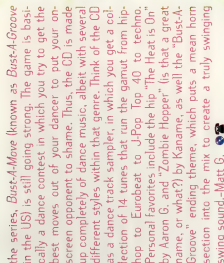 the series, Bust-A-Move (known as Bust-A-Groove
in the US) is still going strong. The game is basi-
cally a dance contest in which you try to get the
best moves out of your dancer to put your on-
screen opponent to shame. Thus, the CD is made
up completely of dance music, albeit with several
different styles within that genre. Think of the CD
as a dance track sampler, in which you get a col-
lection of 14 tunes that run the gamut from hip-
hop to Eurobeat to J-Pop Top 40 to techno.
Personal Favorites include the hip "The Heat is On"
by Aaron G. and "Zombie Hopper" (is that a great
name, or what?) by Kaname, as well the "Bust-A-
Groove" ending theme, which puts a mean horn
section into the mix to create a truly swinging
sound.-Matt G.